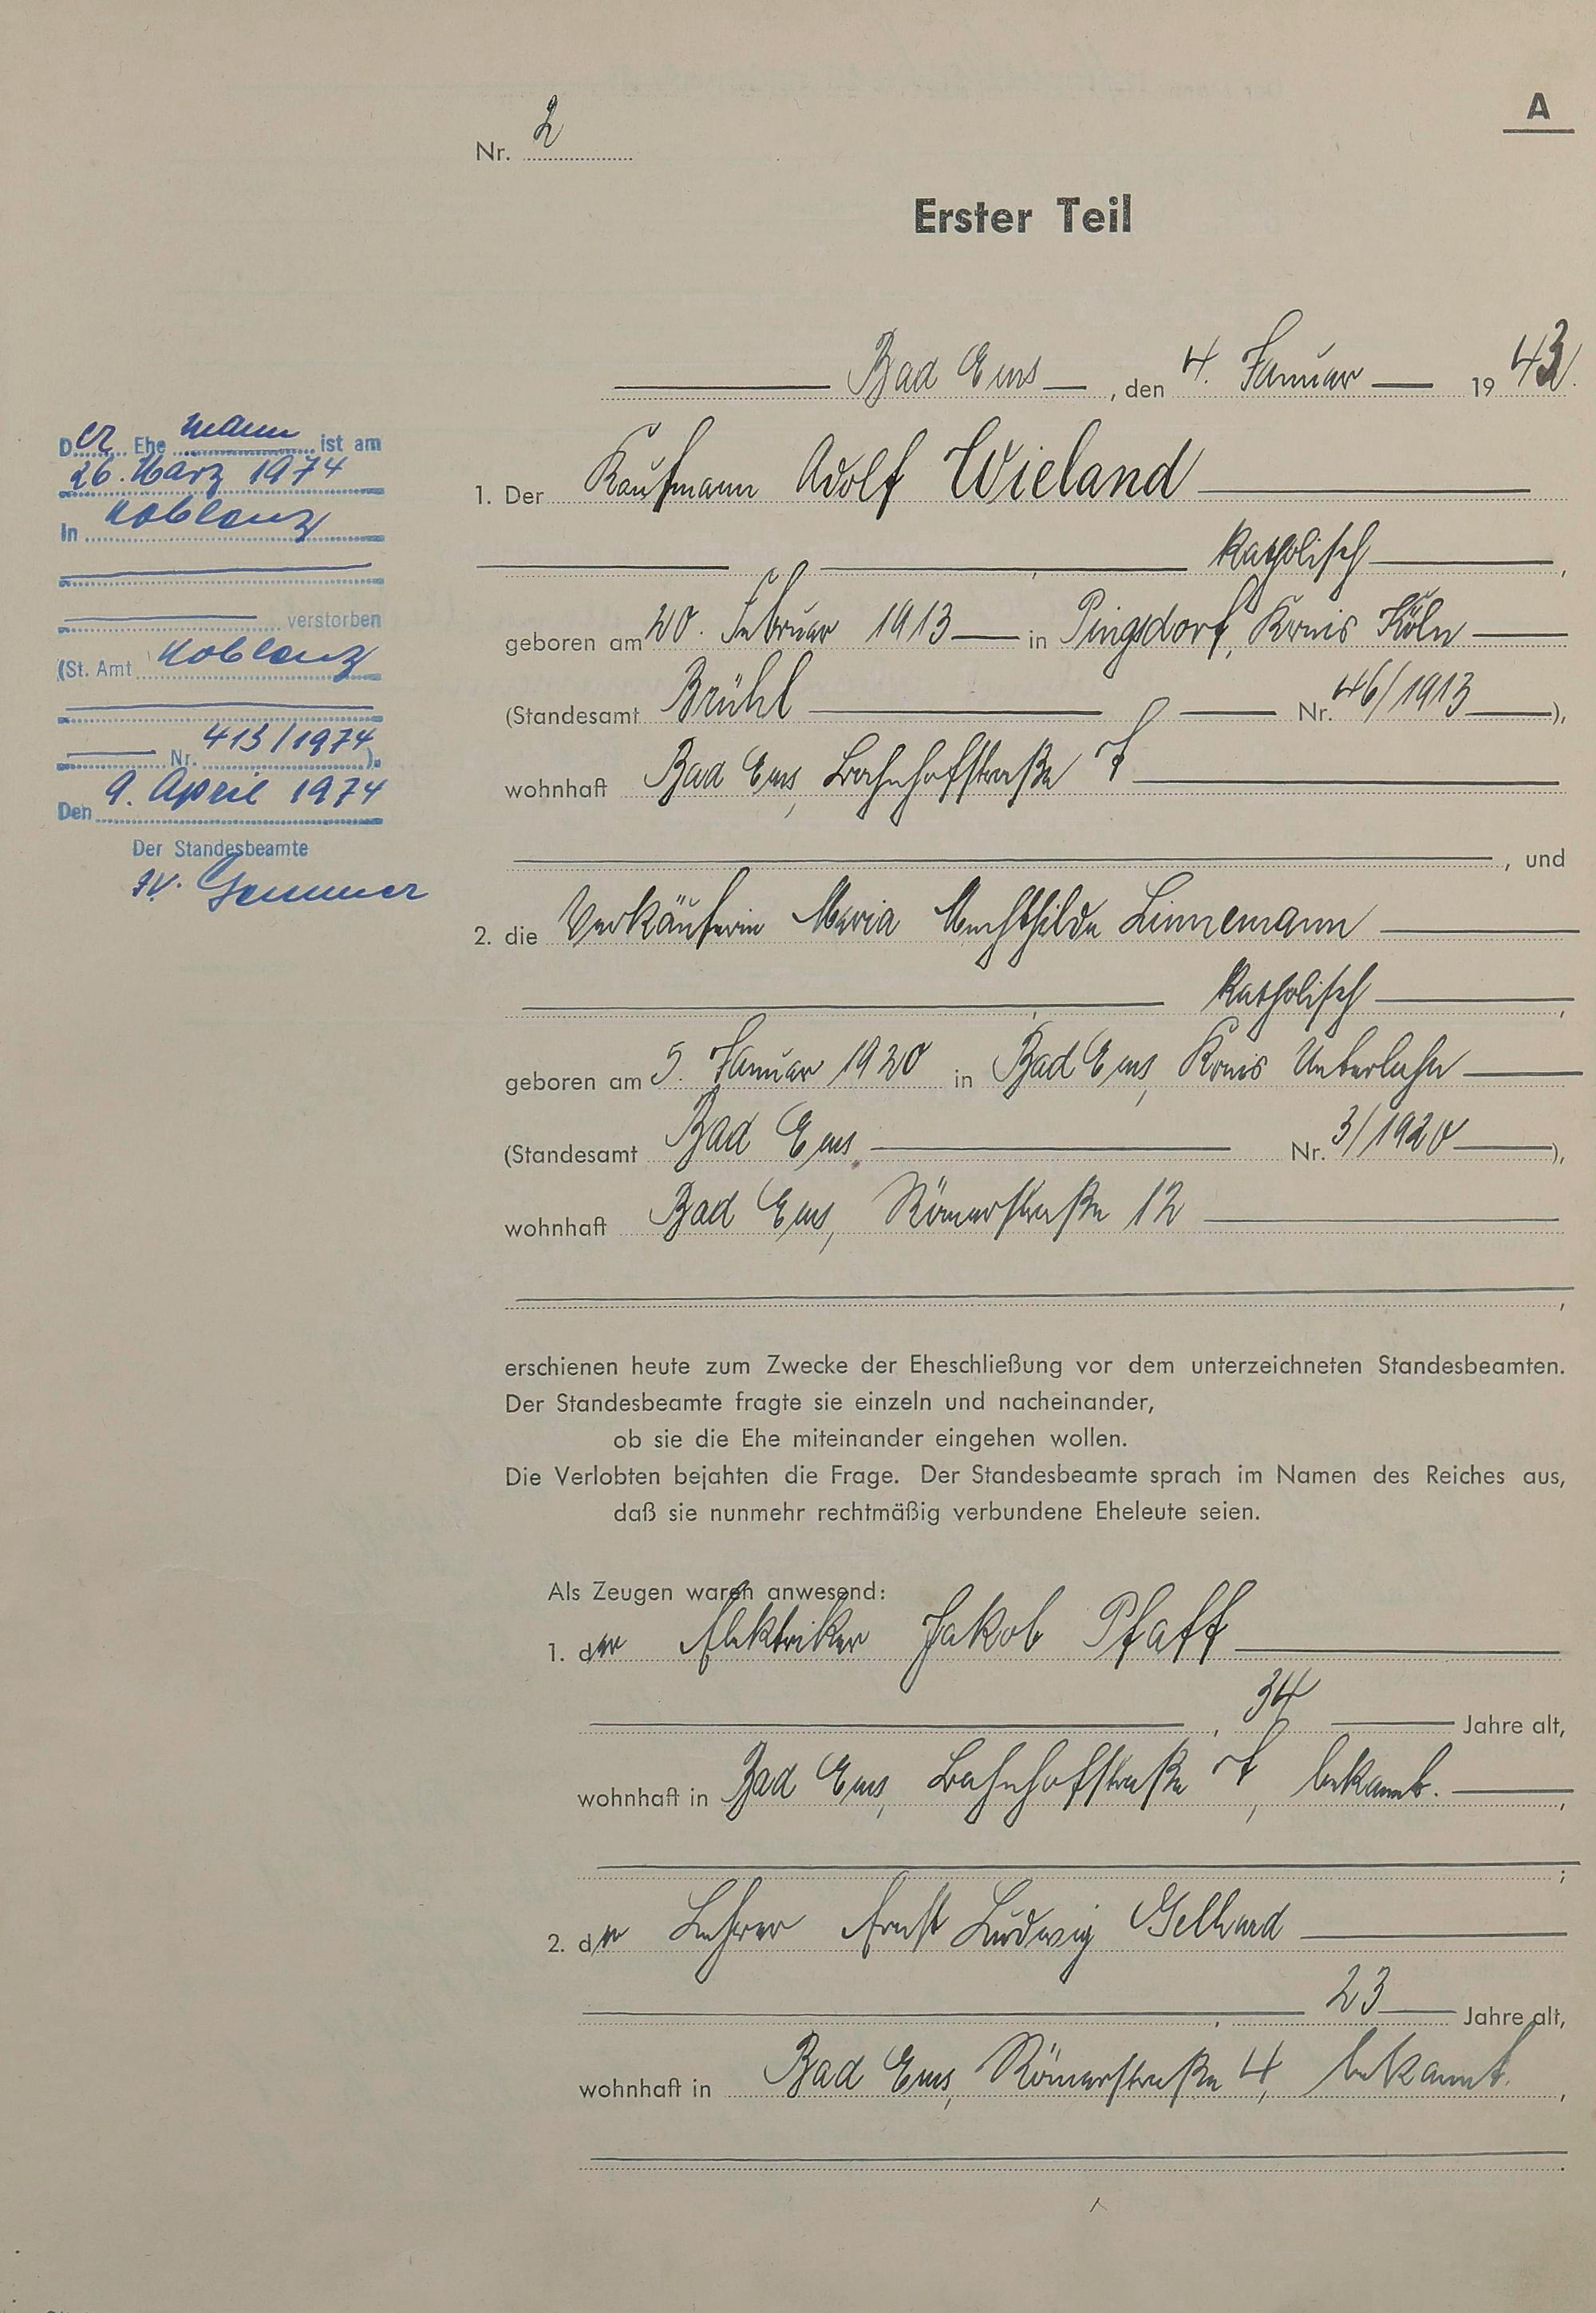 A
Nr. 2
Erster Teil
Bad Ems, den 4. Januar 1943.
1. Der Kaufmann Adolf Wieland
katholisch,
geboren am 20. Februar 1913 in Pingsdorf, Kreis Köln
(Standesamt Brühl Nr. 46/1913),
wohnhaft Bad Ems, Bahnhofstraße 7
, und
2. die Verkäuferin Maria Mechthilde Linnemann
katholisch,
geboren am 5. Januar 1920 in Bad Ems, Kreis Unterlahn
(Standesamt Bad Ems Nr. 3/1920),
wohnhaft Bad Ems, Römerstraße 12
,
erschienen heute zum Zwecke der Eheschließung vor dem unterzeichneten Standesbeamten.
Der Standesbeamte fragte sie einzeln und nacheinander,
ob sie die Ehe miteinander eingehen wollen.
Die Verlobten bejahten die Frage. Der Standesbeamte sprach im Namen des Reiches aus,
daß sie nunmehr rechtmäßig verbundene Eheleute seien.
Als Zeugen waren anwesend:
1. der Elektriker Jakob Pfaff
, 34 Jahre alt,
wohnhaft in Bad Ems, Bahnhofstraße 7, bekannt.,
;
2. der Lehrer Ernst Ludwig Gelhard
, 23 Jahre alt,
wohnhaft in Bad Ems, Römerstraße 4, bekannt.,
.
Der Ehemann ist am
26. März 1974
In Koblenz
verstorben
(St. Amt Koblenz
Nr. 413/1974).
Den 9. April 1974
Der Standesbeamte
I.V.